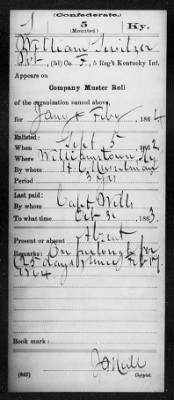 (Confederate.)
5
(Mounted.)
Ky.
William Switzer
Pvt., (3d) Co. F, 5 Reg't Kentucky Inf.
Appears on
Company Muster Roll
of the organization named above,
for Jany & Feby, 1864
Enlisted:
When Sept 5, 1862
Where Williamstown, Ky
By whom H. C. Musselman
Period 3 yrs
Last paid:
By whom Capt Wills
To what time Oct 31, 1863.
Present or absent Absent
Remarks: On furlough for
25 days since Feb 17
1864
Book mark:
(642)
Copyist.